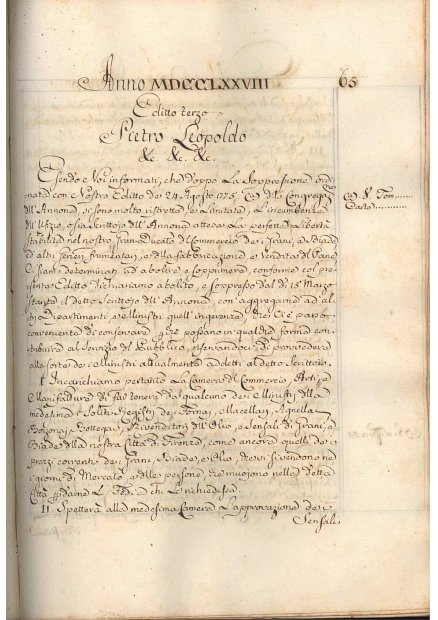 Anno MDCCLXXVIII 65
Editto terzo
Pietro Leopoldo
&c. &c. &c.
Essendo Noi informati, che doppo La Soppressione ordi-
nata con Nostro Editto de' 24. Agosto 1775. della Congregaz.
dell'Annona, si sono molto ristrette, e Limitate, Le incumbenze
dell'Ufizio, o sia Scrittojo dell'Annona attesa La perfetta Libertà
stabilita nel nostro Gran-Ducato del Commercio de' Grani, e Biade
ed altri generi frumentari, e della fabbricazione, e Vendita del Pane
Ci siamo determinati ad abolire, e sopprimere, conforme col pre-
sente Editto Dichiariamo abolito, e soppresso dal dì 15. Marzo
stante il detto Scrittojo dell'Annona, con aggregarne ad al-
tri Dipartimenti, e Ministri quell'ingerenze, che Ci è parso
conveniente di conservare, che possano in qualche forma con-
tribuire al servizio del Pubblico, riservandoci di provvedere
alla sorte de' Ministri attualmente addetti al detto Scrittojo.
I Incarichiamo pertanto La Camera di Commercio, Arti, e
Manifatture di far tenere da qualcuno de' Ministri della
medesima i soliti Registri de' Fornaj, Macellari,
Bottegaj, Rivenditori dell'Olio, e Sensali di Grani, e
Biade della nostra Città di Firenze, come ancora quelli de'
Prezzi correnti de' Grani, Biade, e Olio, che vi si vendono ne'
giorni di Mercato, e delle persone, che muojono nella detta
Città, e darne Le Fedi a chi Le richiedesse.
II Spetterà alla medesima Camera L'approvazione de'
Sensali